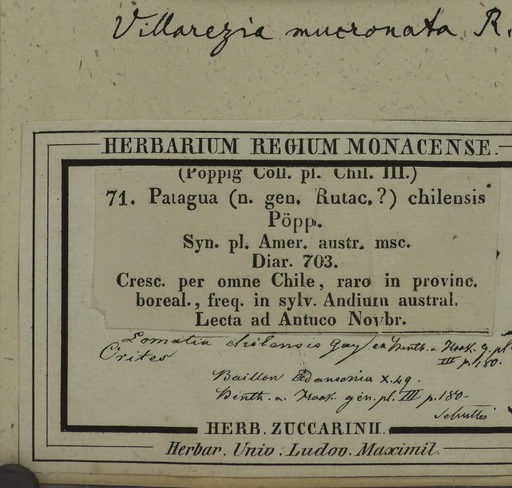 Villarezia mucronata R.
HERBARIUM REGIUM MONACENSE.
(Pöppig Coll. pl. Chil. III.)
71. Patagua (n. gen. Rutac.?) chilensis
Pöpp.
Syn. pl. Amer. austr. msc.
Diar. 703.
Cresc. per omne Chile, raro in provinc.
boreal., freq. in sylv. Andium austral.
Lecta ad Antuco Novbr.
Lomatia chilensis Gay, ex Benth. & Hook. g. pl.
Crites III p. 180.
Baillon Adansonia X. 49.
Benth. & Hook gen. pl. III p. 180.
HERB. ZUCCARINII.
Herbar. Univ. Ludov. Maximil.